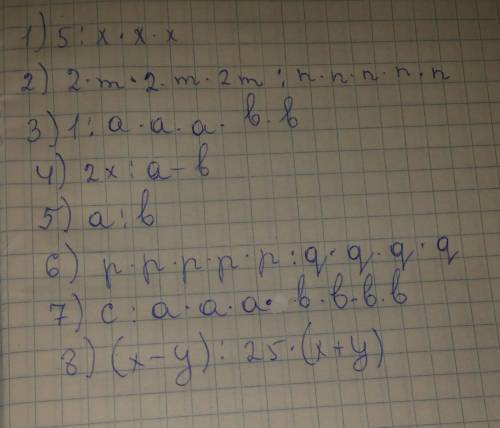 1) 5 : x · x · x
2) 2 · m · 2 · m · 2m : n · n · n · n · n
3) 1 : a · a · a · b · b
4) 2x : a - b
5) a : b
6) p · p · p · p · p : q · q · q · q
7) c : a · a · a · b · b · b · b
8) (x - y) : 25 · (x + y)